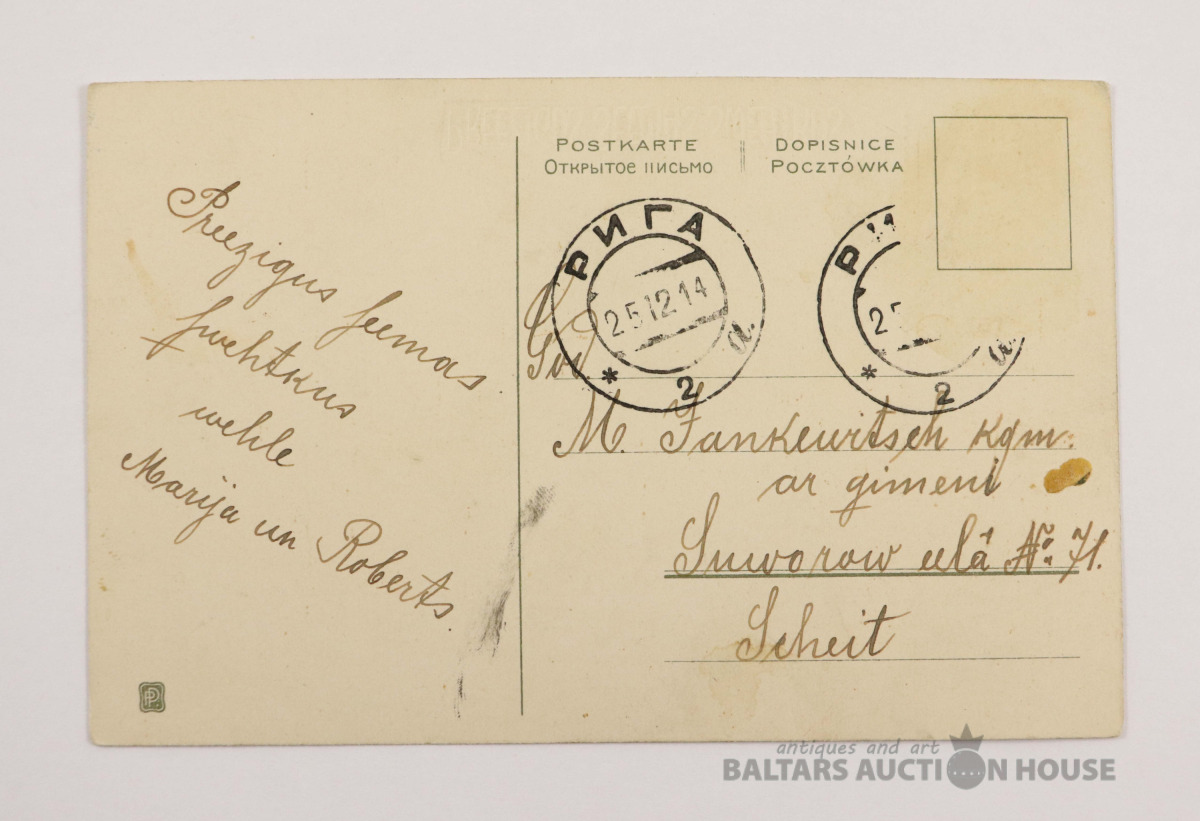 POSTKARTE
ОТКРЫТОЕ ПИСЬМО
DOPISNICE
POCZTÓWKA
РИГА
25 12 14
* 2 a
РИ
25
* 2 a
Preezigus seemas
swehtkus
wehle
Marija un Roberts.
God
M. Jankewitsch kgm:
ar gimeni
Suworow eelâ № 71.
Scheit
PP
antiques and art
BALTARS AUCTION HOUSE